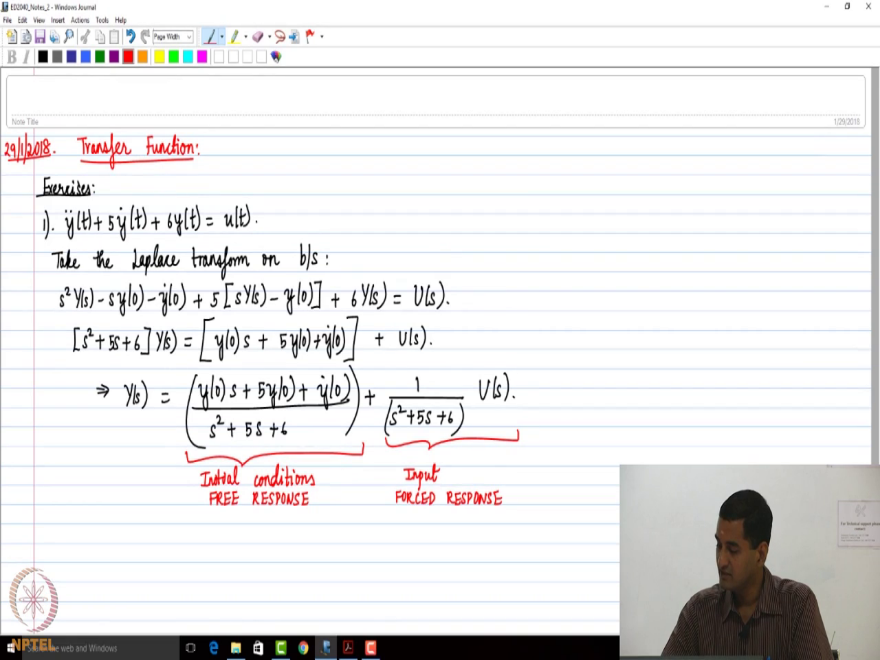 ED2040_Notes_2 - Windows Journal
File Edit View Insert Actions Tools Help
Page Width
B I
Note Title
1/29/2018
29/1/2018. Transfer Function:
Exercises:
1). ÿ(t) + 5ẏ(t) + 6y(t) = u(t).
Take the Laplace transform on b/s:
s²Y(s) - sy(0) - ẏ(0) + 5[sY(s) - y(0)] + 6Y(s) = U(s).
[s²+5s+6] Y(s) = [y(0)s + 5y(0)+ẏ(0)] + U(s).
⇒ Y(s) = (y(0)s + 5y(0) + ẏ(0) / s² + 5s + 6) + 1 / (s²+5s+6) U(s).
Initial conditions Input
FREE RESPONSE FORCED RESPONSE
NPTEL
the web and Windows